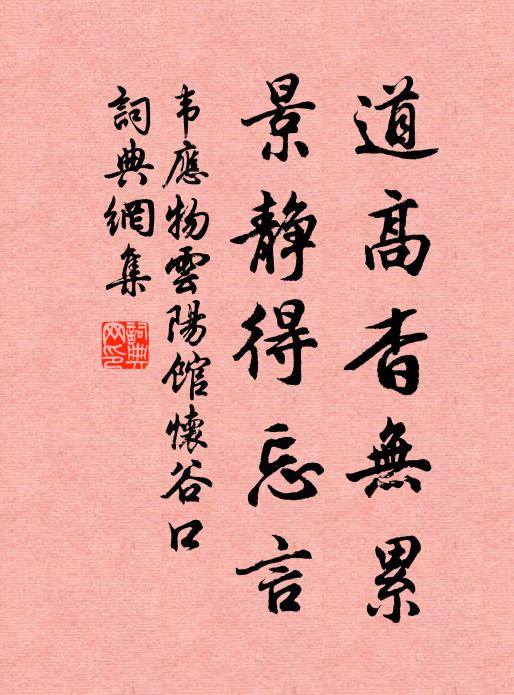 道高杳無累
景静得忘言
韦應物雲陽馆懷谷口
詞典網集
詞典网印